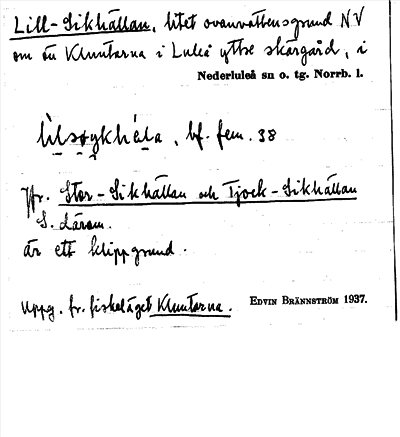 Lill-Sikhällan, litet ovanvattensgrund NV
om ön Kluntarna i Luleå yttre skärgård, i
Nederluleå sn o. tg. Norrb. l.
bf. fem. 38
Jfr. Stor-Sikhällan och Tjock-Sikhällan
S. därom.
är ett klippgrund.
Uppg. fr. fiskeläget Kluntarna.
EDVIN BRÄNNSTRÖM 1937.